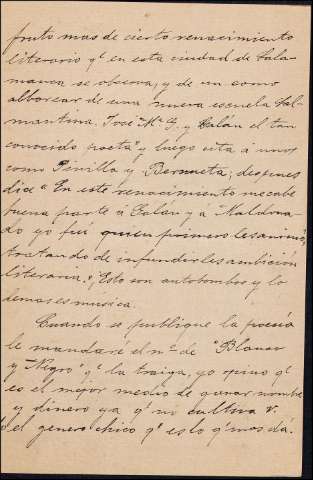 fruto mas de cierto renacimiento
literario qᵉ en esta ciudad de Sala-
manca se observa, y de un como
alborear de una nueva escuela Sal-
mantina. José Mª G. y Galán el tan
conocido poeta" y luego cita á unos
como Pinilla y Berrueta; despues
dice "En este renacimiento me cabe
buena parte á Galán y á Maldona-
do yo fuí quien primero les animó,
tratando de infundirles ambición
literaria". Esto son autobombos y lo
demas es música.
Cuando se publique la poesía
le mandaré el nº de "Blanco
y Negro" qᵉ la traiga, yo opino qᵉ
es el mejor medio de ganar nombre
y dinero ya qᵉ no cultiva V.
el genero chico qᵉ es lo qᵉ mas dá.